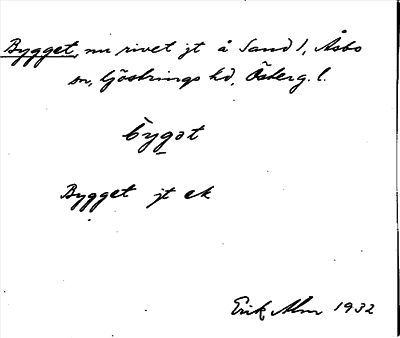 Bygget, nu rivet jt å Sand 1, Åsbo
sn, Göstrings hd, Österg. l.
bygət
Bygget jt ek
Erik Alm 1932